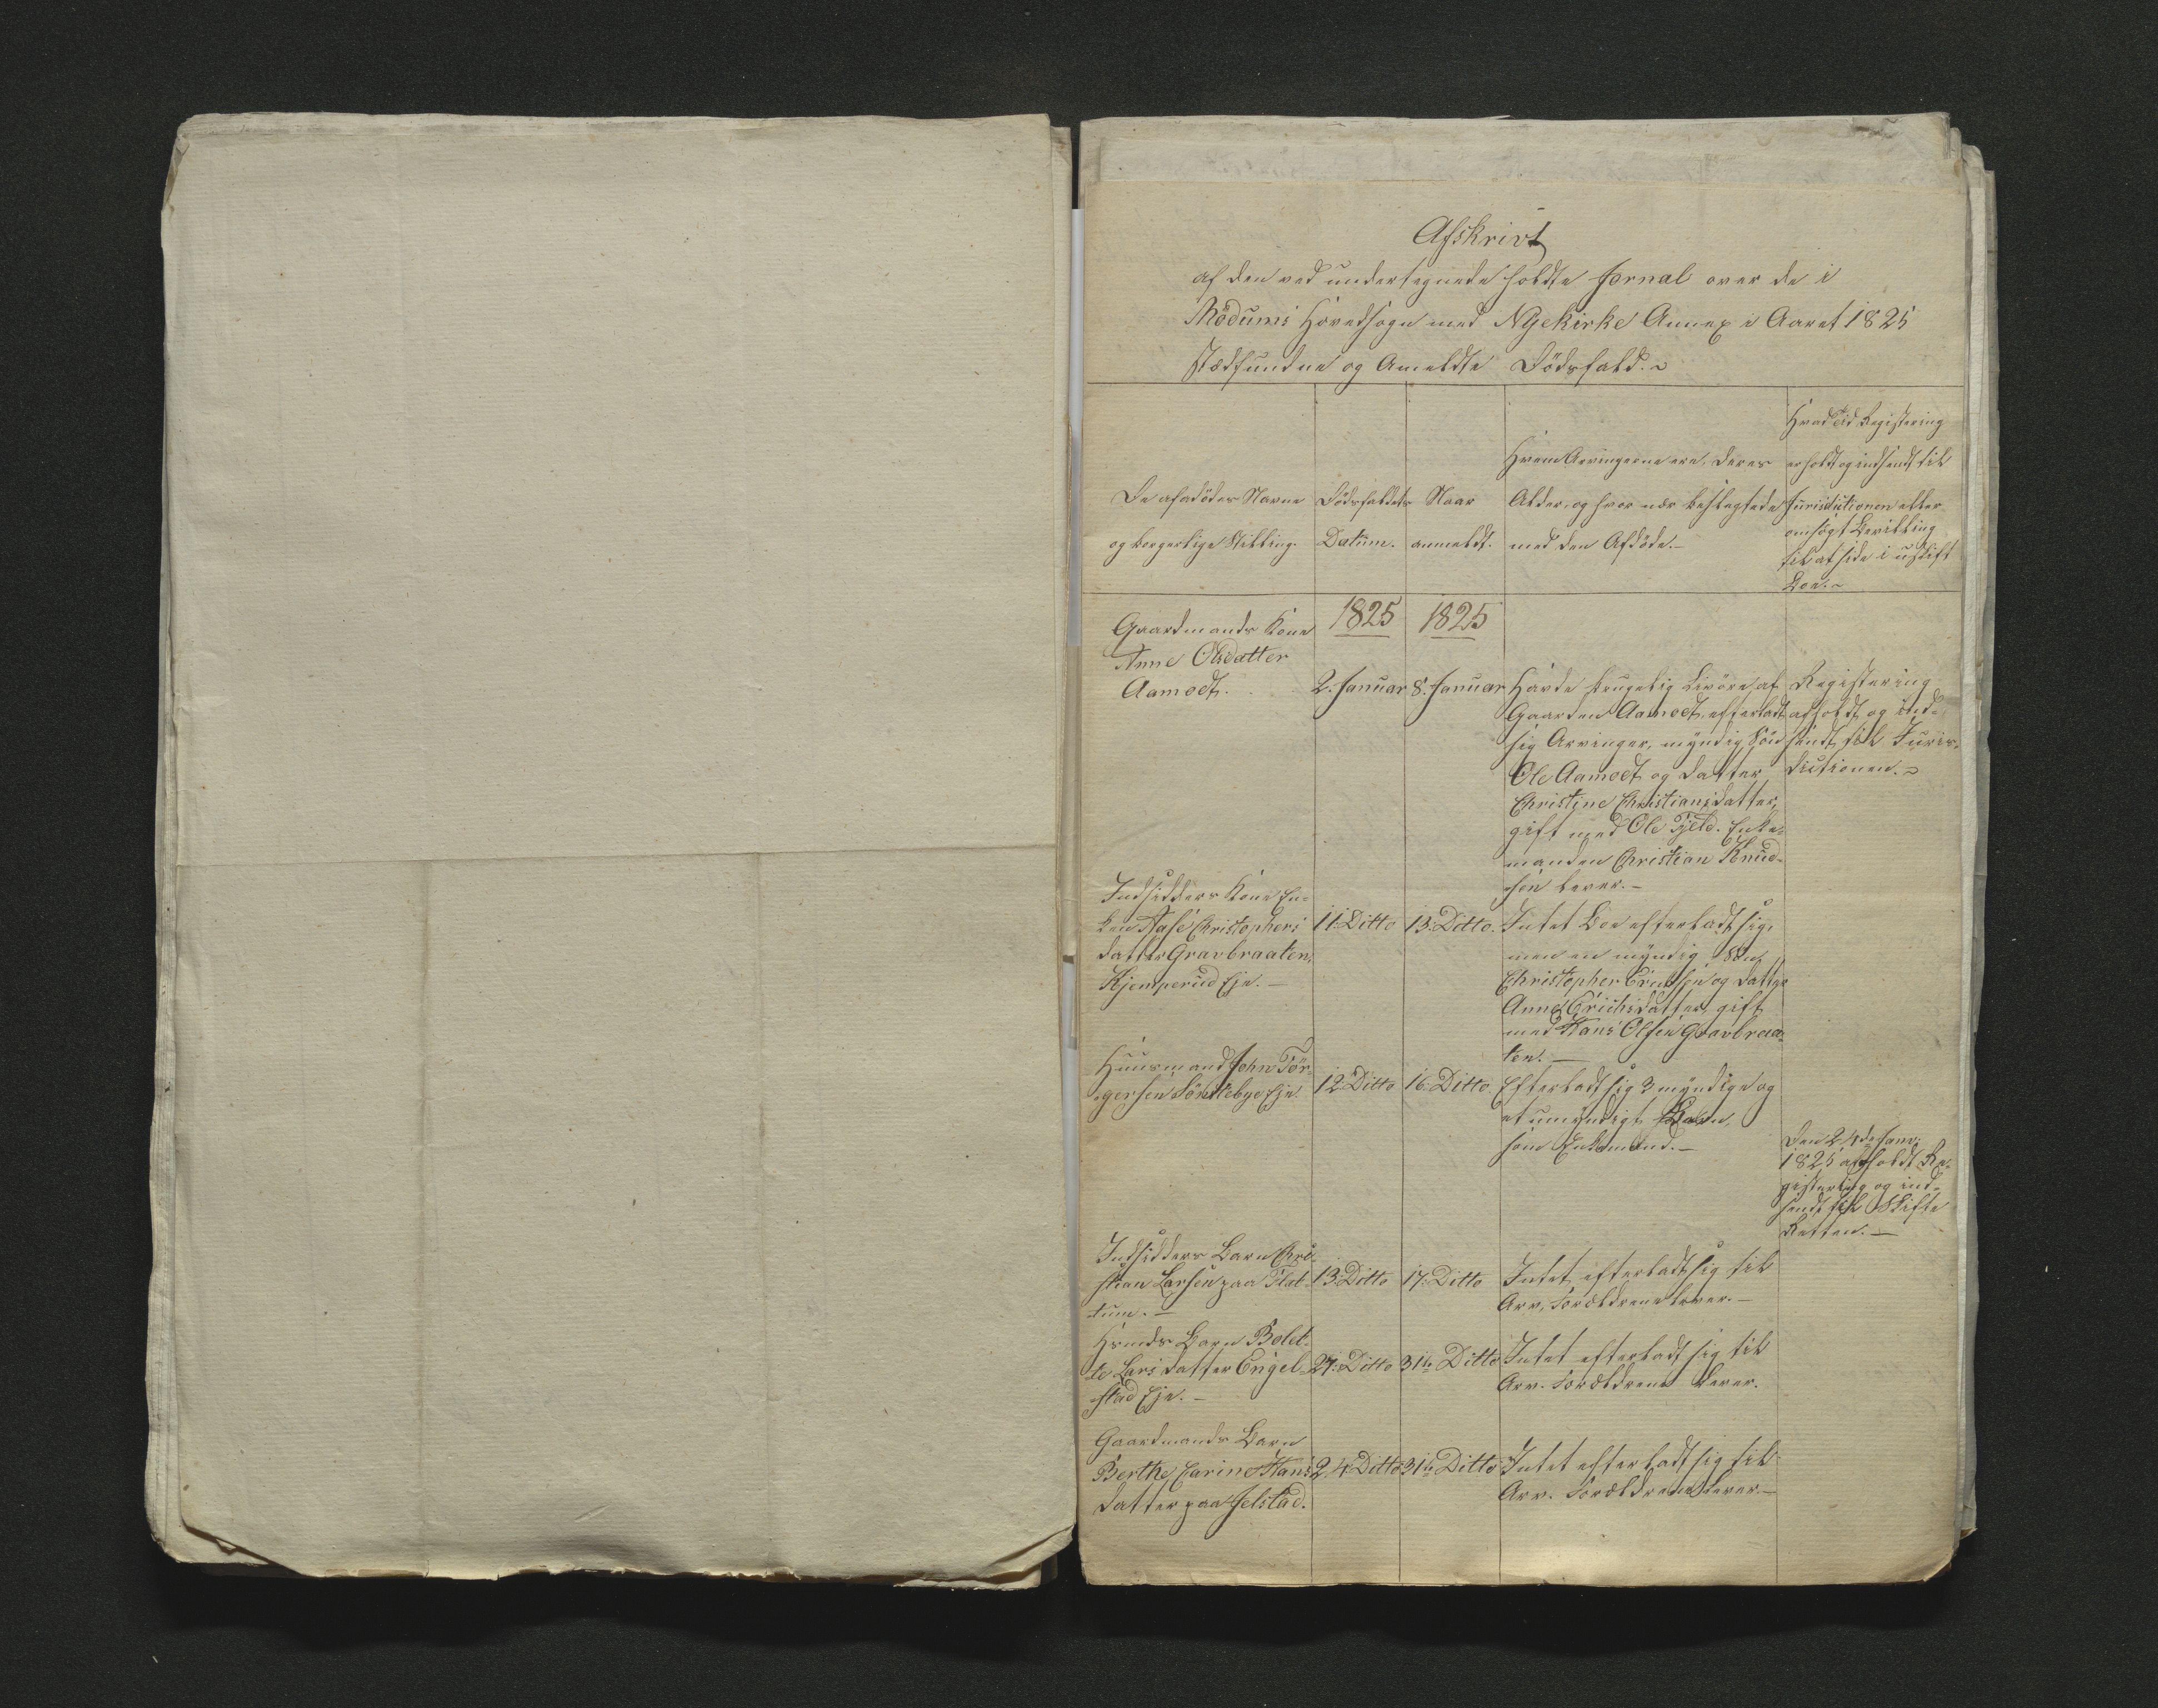 Afskrivt
af den ved undertegnede holdte Jornal over de i
Modums Hovedsogn med Nyekirke Annex i Aaret 1825
stedfundne og Anmeldte Dödsfald.
De afdödes Navne
og borgerlige Stilling.
Dödsfaldets
Datum.
Naar
anmeldt.
Hvem Arvingerne ere, deres
Alder, og hvor nær beslegtede
med den Afdöde.—
Hvad tid Registering
er holdt og indsendt til
Jurisdictionen eller
om søgt Bevilling
til at side i uskift
Boe.
Gaardmands Kone
Anne Olsdatter
Aamodt.
1825
2. Januar
1825
8. Januar
Havde brugelig Livöre af
Gaarden Aamodt, efterladt
sig Arvinger, myndig Sön
Ole Aamodt og Datter
Christine Christiansdatter,
gift med Ole Fjeld. Enke-
manden Christian Knud-
sön lever.—
Registering
afholdt og ind-
sendt til Juris-
dictionen.
Indsidders Kone En-
ken Aase Christophers
datter Gravbraaten,
Kjemperud Eje.—
11. Ditto
13. Ditto.
Intet Boe efterladt sig,
men en myndig Sön,
Christopher Erichsen og datter
Anne Erichsdatter, gift
med Hans Olsen Gravbraa-
ten.—
Huusmand John Tor-
gersen Söndebye Eje.
12 Ditto
16. Ditto.
Efterladt sig 3 myndige og
et umyndigt Barn,
som Enkemand.—
Den 24de Janv:
1825 afholdt Re-
gistering og ind-
sendt til Skifte
Retten.—
Indsidders Barn Chri-
stian Larsen paa
tum.—
13. Ditto
17. Ditto
Intet efterladt sig til
Arv, Forældrene lever.—
Hsmds Barn Bolet-
te Larsdatter Engel-
stad Eje.—
27. Ditto
31te Ditto
Intet efterladt sig til
Arv. Forældrene lever.
Gaardmands Barn
Berthe Carine Hans
datter paa Jelstad.
24. Ditto
31te Ditto
Intet efterladt sig til
Arv. Forældrene lever.—